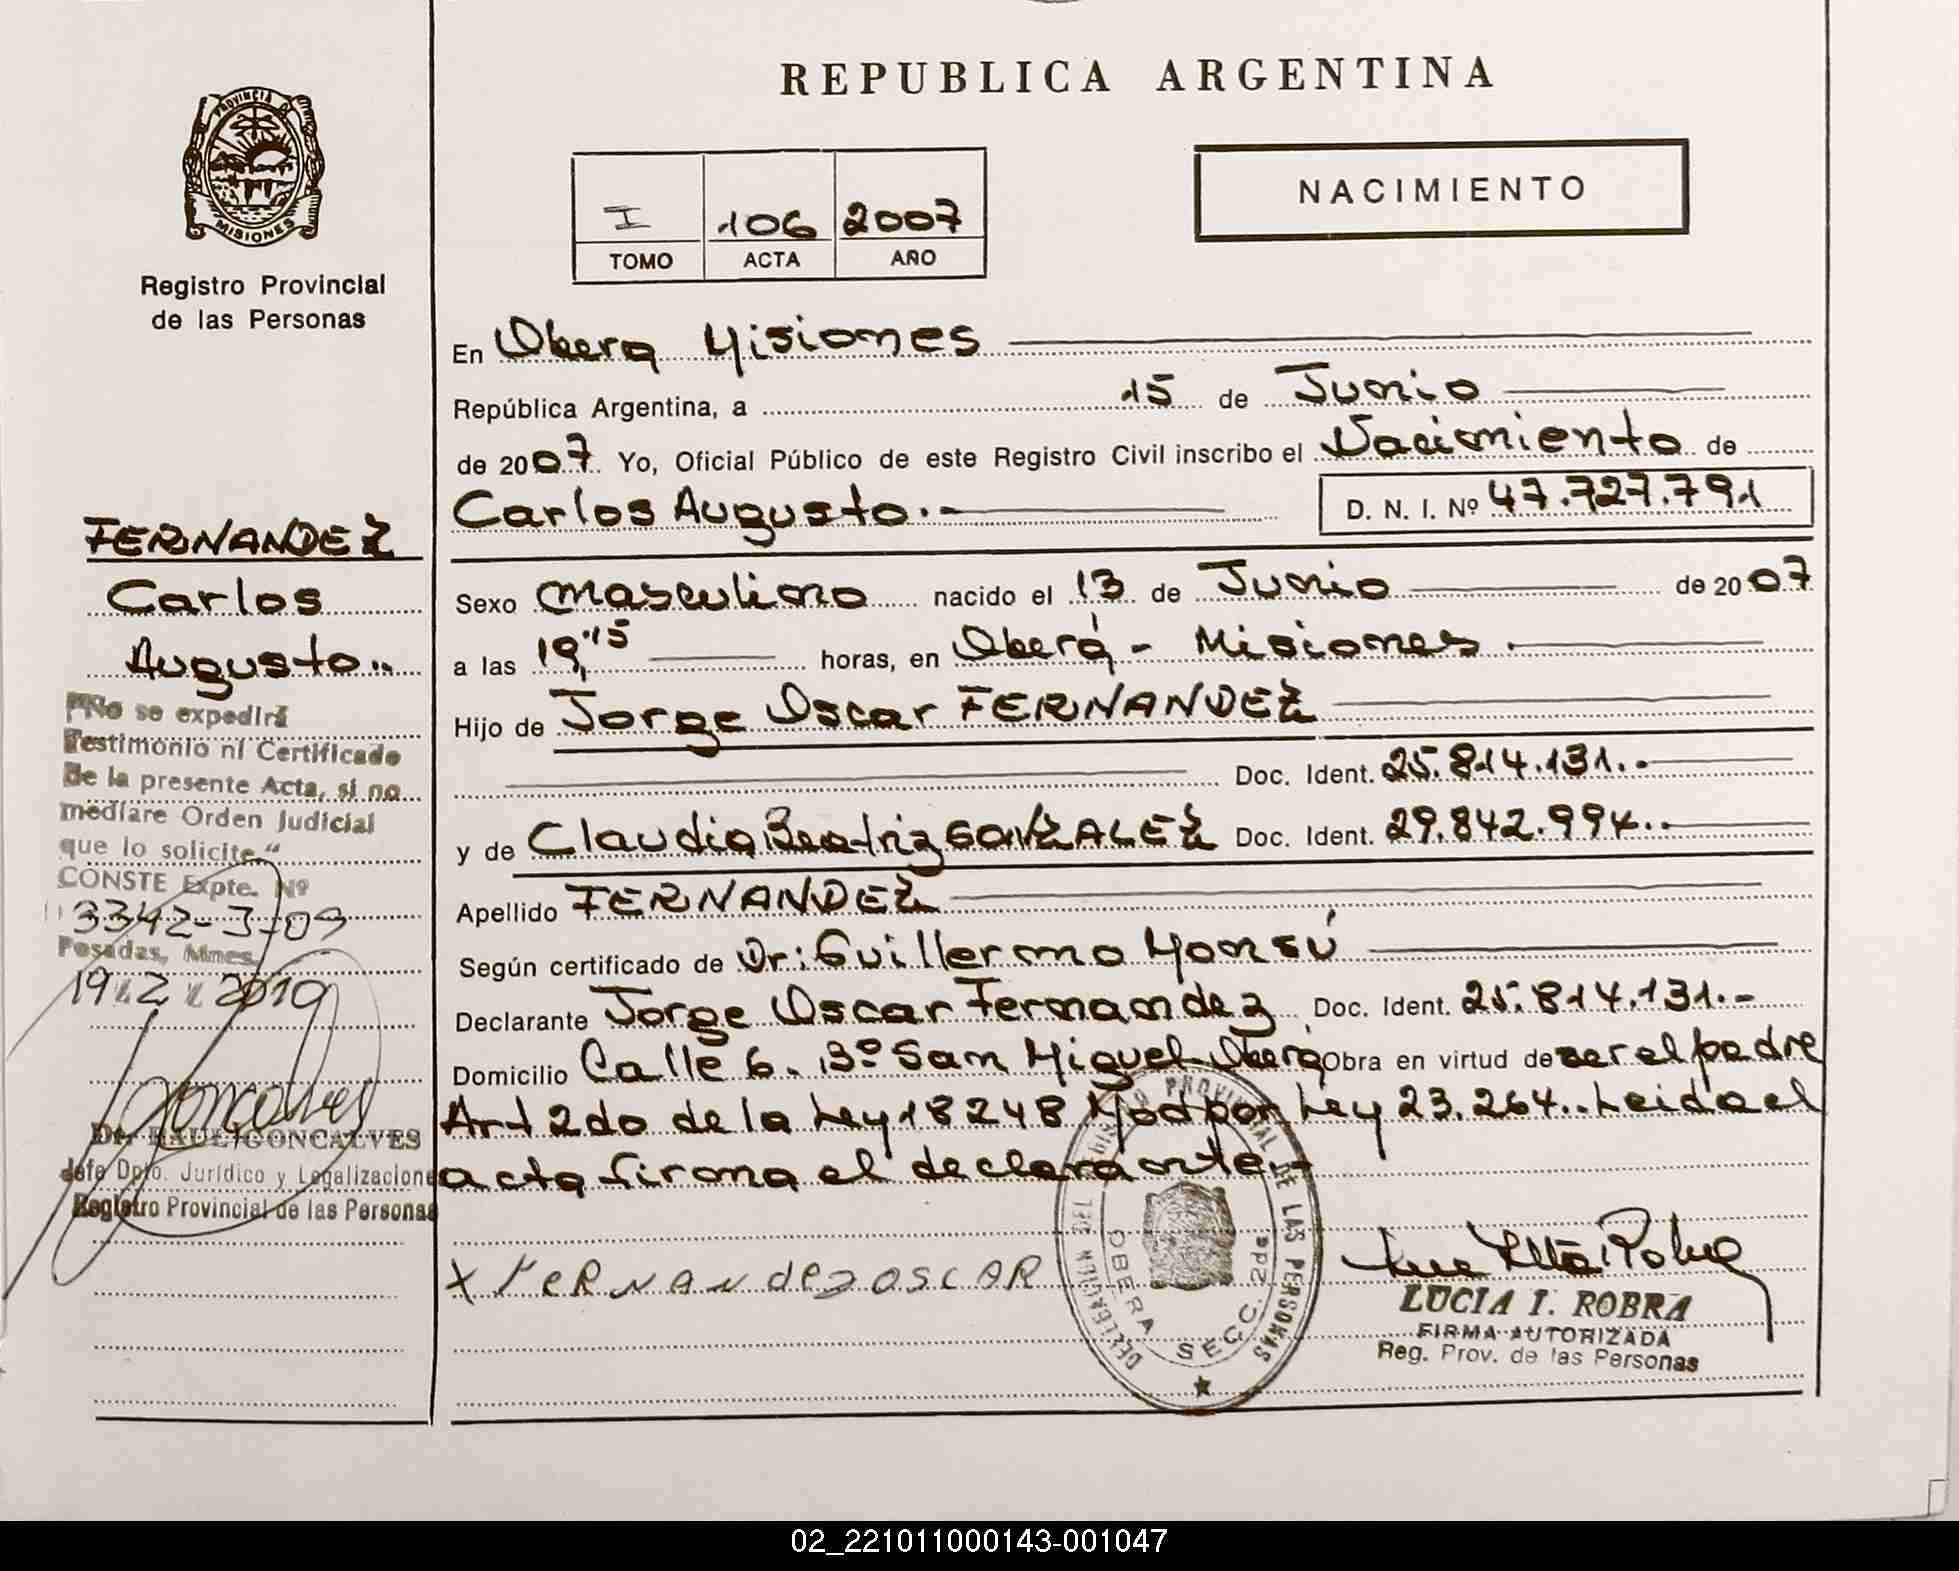 REPUBLICA ARGENTINA
PROVINCIA DE
MISIONES
Registro Provincial
de las Personas
I 106 2007
TOMO ACTA AÑO
NACIMIENTO
En Obera Misiones
República Argentina, a 15 de Junio
de 2007 Yo, Oficial Público de este Registro Civil inscribo el Nacimiento de
Carlos Augusto.-
D. N. I. Nº 47.727.791
Sexo masculino nacido el 13 de Junio de 2007
a las 19,15 horas, en Oberá - Misiones
Hijo de Jorge Oscar FERNANDEZ
Doc. Ident. 25.814.131.-
y de Claudia Beatriz GONZALEZ Doc. Ident. 29.842.994.-
Apellido FERNANDEZ
Según certificado de Dr: Guillermo Monsú
Declarante Jorge Oscar Fernandez Doc. Ident. 25.814.131.-
Domicilio Calle 6. Bº San Miguel Obera Obra en virtud de ser el padre
Art 2do de la Ley 18248 Mod por Ley 23.264.. Leida el
acta firma el declarante.-
X FERNANdez OSCAR
DELEGACION DEL REGISTRO PROVINCIAL DE LAS PERSONAS
OBERA SECC. 2da
LUCIA I. ROBRA
FIRMA AUTORIZADA
Reg. Prov. de las Personas
FERNANDEZ
Carlos
Augusto..
"No se expedirá
Testimonio ni Certificado
De la presente Acta, si no
mediare Orden Judicial
que lo solicite"
CONSTE Expte. Nº
3342-J-09
Posadas, Mnes.
19 2 2010
Dr. RAUL GONCALVES
Jefe Dpto. Jurídico y Legalizacione
Registro Provincial de las Personas
02_221011000143-001047